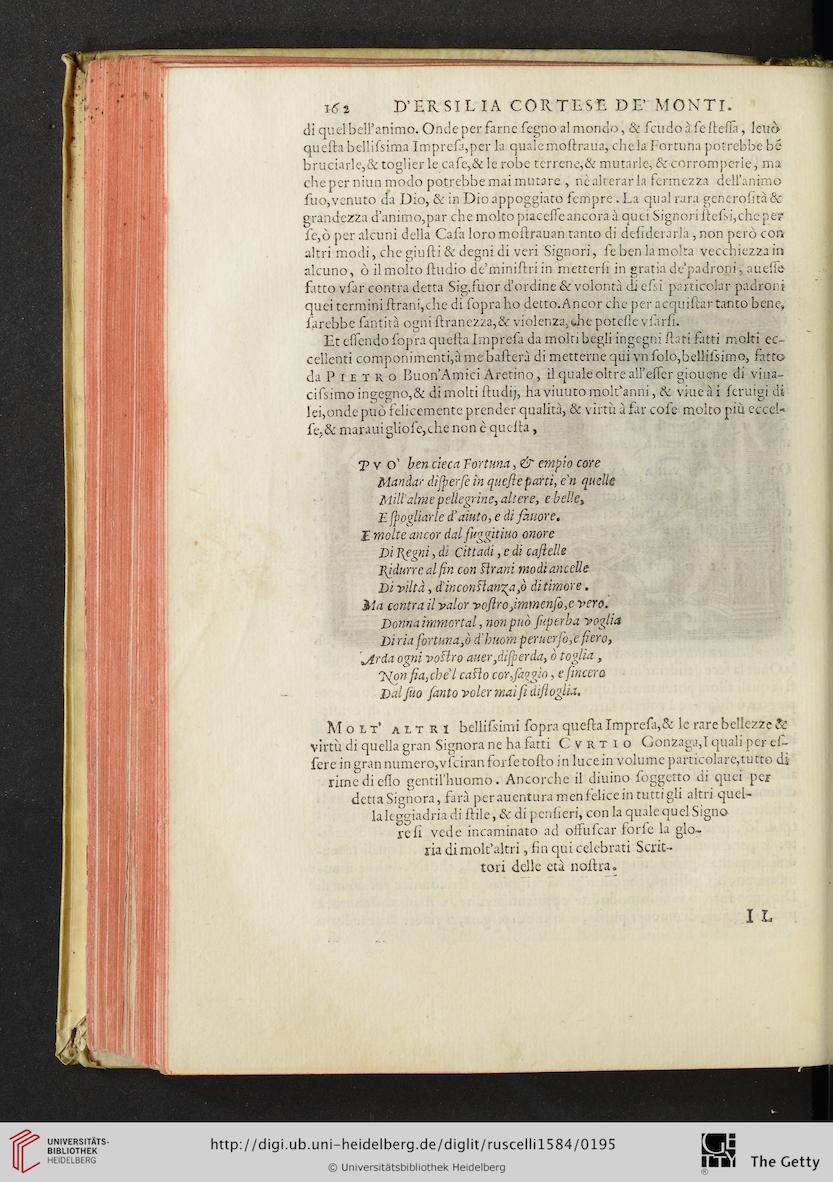 162 D'ERSILIA CORTESE DE' MONTI.
di quel bell'animo. Onde per farne ſegno al mondo, & ſcudo à ſe ſteſſa, leuò
queſta belliſsima Impreſa, per la quale moſtraua, che la Fortuna potrebbe bẽ
bruciarle,& toglier le caſe,& le robe terrene,& mutarle, & corromperle, ma
che per niun modo potrebbe mai mutare, nè alterar la fermezza dell'animo
ſuo, venuto da Dio, & in Dio appoggiato ſempre. La qual rara generoſità &
grandezza d'animo, par che molto piaceſſe ancora à quei Signori ſteſsi, che per
ſe, ò per alcuni della Caſa loro moſtrauan tanto di deſiderarla, non però con
altri modi, che giuſti & degni di veri Signori, ſe ben la molta vecchiezza in
alcuno, ò il molto ſtudio de'miniſtri in metterſi in gratia de'padroni, aueſſe
fatto vſar contra detta Sig. fuor d'ordine & volontà di eſsi particolar padroni
quei termini ſtrani, che di ſopra ho detto. Ancor che per acquiſtar tanto bene,
ſarebbe ſantità ogni ſtranezza, & violenza, che poteſſe vſarſi.
Et eſſendo ſopra queſta Impreſa da molti begli ingegni ſtati fatti molti ec-
cellenti componimenti, à me baſterà di metterne qui vn ſolo, belliſsimo, fatto
da PIETRO Buon'Amici Aretino, il quale oltre all'eſſer giouene di viua-
ciſsimo ingegno, & di molti ſtudij, ha viuuto molt'anni, & viue à i ſeruigi di
lei, onde può felicemente prender qualità, & virtù à far coſe molto più eccel-
ſe, & marauiglioſe, che non è queſta,
PVO' ben cieca Fortuna, & empio core
Mandar diſperſe in queſte parti, e'n quelle
Mill'alme pellegrine, altere, e belle,
E ſpogliarle d'aiuto, e di fauore.
E molte ancor dal fuggitiuo onore
Di Regni, di Cittadi, e di caſtelle
Ridurre al fin con ſtrani modi ancelle
Di viltà, d'inconſtanza, ò di timore.
Ma contra il valor voſtro, immenſo, e vero.
Donna immortal, non può ſuperba voglia
Di ria fortuna, ò d'huom peruerſo, e fiero,
Arda ogni voſtro auer, diſperda, ò toglia,
Non fia, che'l caſto cor, ſaggio, e ſincero
Dal ſuo ſanto voler mai ſi diſtoglia.
MOLT' ALTRI belliſsimi ſopra queſta Impreſa, & le rare bellezze &
virtù di quella gran Signora ne ha fatti CVRTIO Gonzaga, I quali per eſ-
ſere in gran numero, vſciran forſe toſto in luce in volume particolare, tutto di
rime di eſſo gentil'huomo. Ancorche il diuino ſoggetto di quei per
detta Signora, farà per auentura men felice in tutti gli altri quel-
la leggiadria di ſtile, & di penſieri, con la quale quel Signo
re ſi vede incaminato ad offuſcar forſe la glo-
ria di molt'altri, fin qui celebrati Scrit-
tori delle età noſtra.
IL
UNIVERSITÄTS-
BIBLIOTHEK
HEIDELBERG
http://digi.ub.uni-heidelberg.de/diglit/ruscelli1584/0195
© Universitätsbibliothek Heidelberg
The Getty